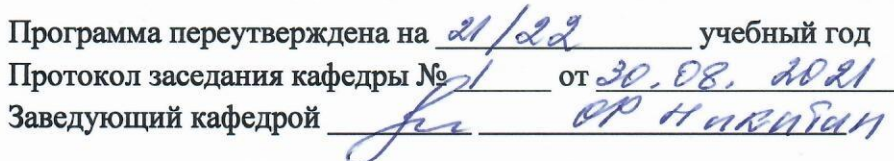 Программа переутверждена на 21/22 учебный год
Протокол заседания кафедры № 1 от 30.08. 2021
Заведующий кафедрой ОР Никитин